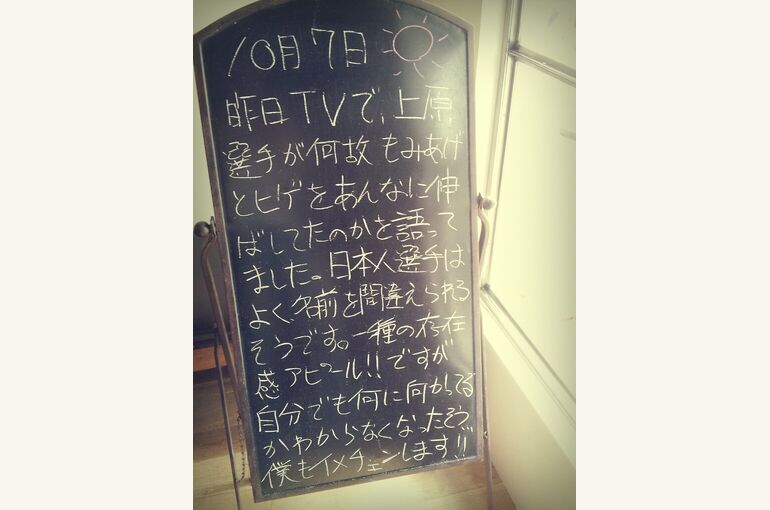 10月7日
昨日TVで、上原
選手が何故もみあげ
とヒゲをあんなに伸
ばしてたのかを語って
ました。日本人選手は
よく名前を間違えられる
そうです。一種の存在
感アピール!!ですが
自分でも何に向かってる
かわからなくなったそう。
僕もイメチェンします!!